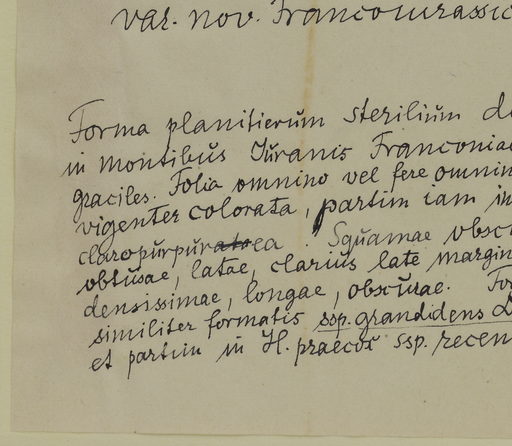 var. nov. Francoiurassic
Forma planitierum sterilium de
in montibus Iuranis Franconiae
graciles. Folia omnino vel fere omnin
vigenter colorata, partim iam in
claropurpuratoea. Squamae obsc
obtusae, latae, clarius late margin
densissimae, longae, obscurae. For
similiter formatis ssp. grandidens D
et partim in H. praecox ssp. recen